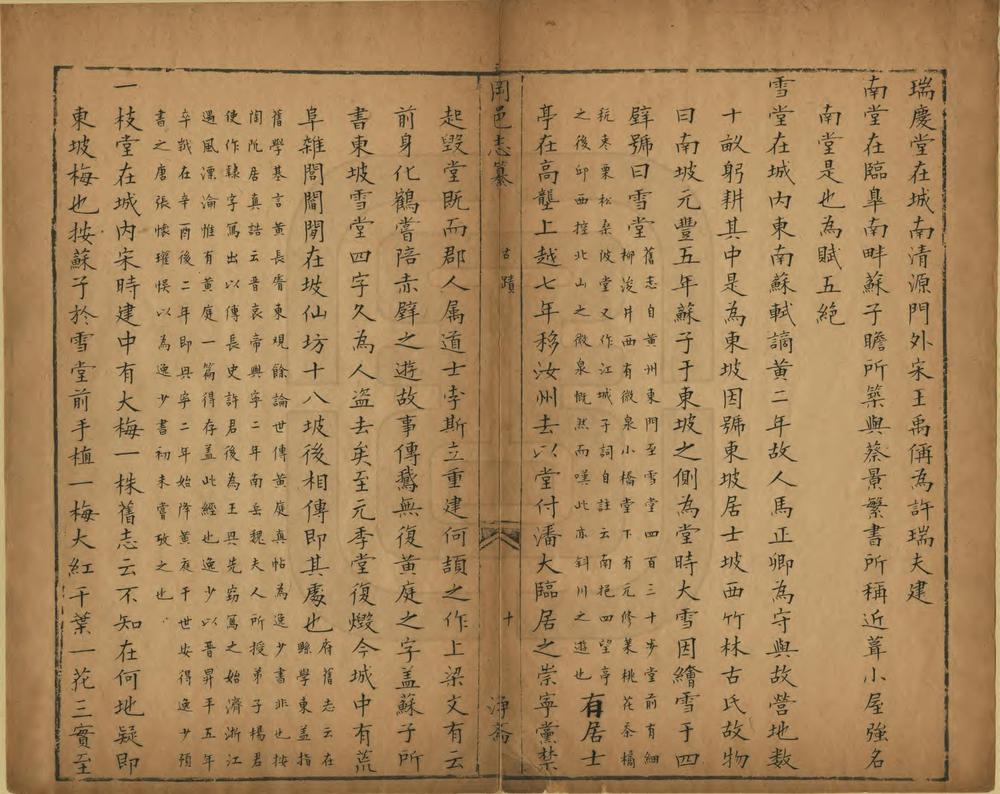 瑞慶堂在城南清源門外宋王禹偁為許瑞夫建
南堂在臨皐南畔蘇子瞻所築與蔡景繁書所稱近葺小屋強名
南堂是也為賦五絕
雪堂在城內東南蘇軾謫黃二年故人馬正卿為守與故營地數
十畝躬耕其中是為東坡因號東坡居士坡西竹林古氏故物
曰南坡元豐五年蘇子于東坡之側為堂時大雪因繪雪于四
壁號曰雪堂舊志自黃州東門至雪堂四百三十步堂前有細
柳浚井西有微泉小橋堂下有元修菜桃花茶橘
秔棗栗松柴陂堂又作江城子詞自註云南挹四望亭
之後邱西控北山之微泉慨然而嘆此亦斜川之遊也有居士
亭在高壟上越七年移汝州去以堂付潘大臨居之崇寧黨禁
岡邑志纂 古蹟 十 淨齋
起毀堂既而郡人属道士李斯立重建何頡之作上梁文有云
前身化鶴嘗陪赤壁之遊故事傳鵞無復黃庭之字盖蘇子所
書東坡雪堂四字久為人盜去矣至元季堂復燬今城中有荒
阜雜閭閻間在坡仙坊十八坡後相傳即其處也府舊志云在
縣學東盖指
舊學基言黃長睿東觀餘論世傳黃庭真帖為逸少書非也按
陶阮居真誥云晉哀帝興寧二年南岳魏夫人所授弟子楊君
使作隸字寫出以傳長史許君後為王興先窃寫之始濟浙江
遇風漂淪惟有黃庭一篇得存盖此經也逸少以晉昇平五年
卒歲在辛酉後二年即興寧二年始降黃庭于世安得逸少預
書之唐張懷瓘悞以為逸少書初未嘗攷之也
一枝堂在城內宋時建中有大梅一株舊志云不知在何地疑即
東坡梅也按蘇子於雪堂前手植一梅大紅千葉一花三實至